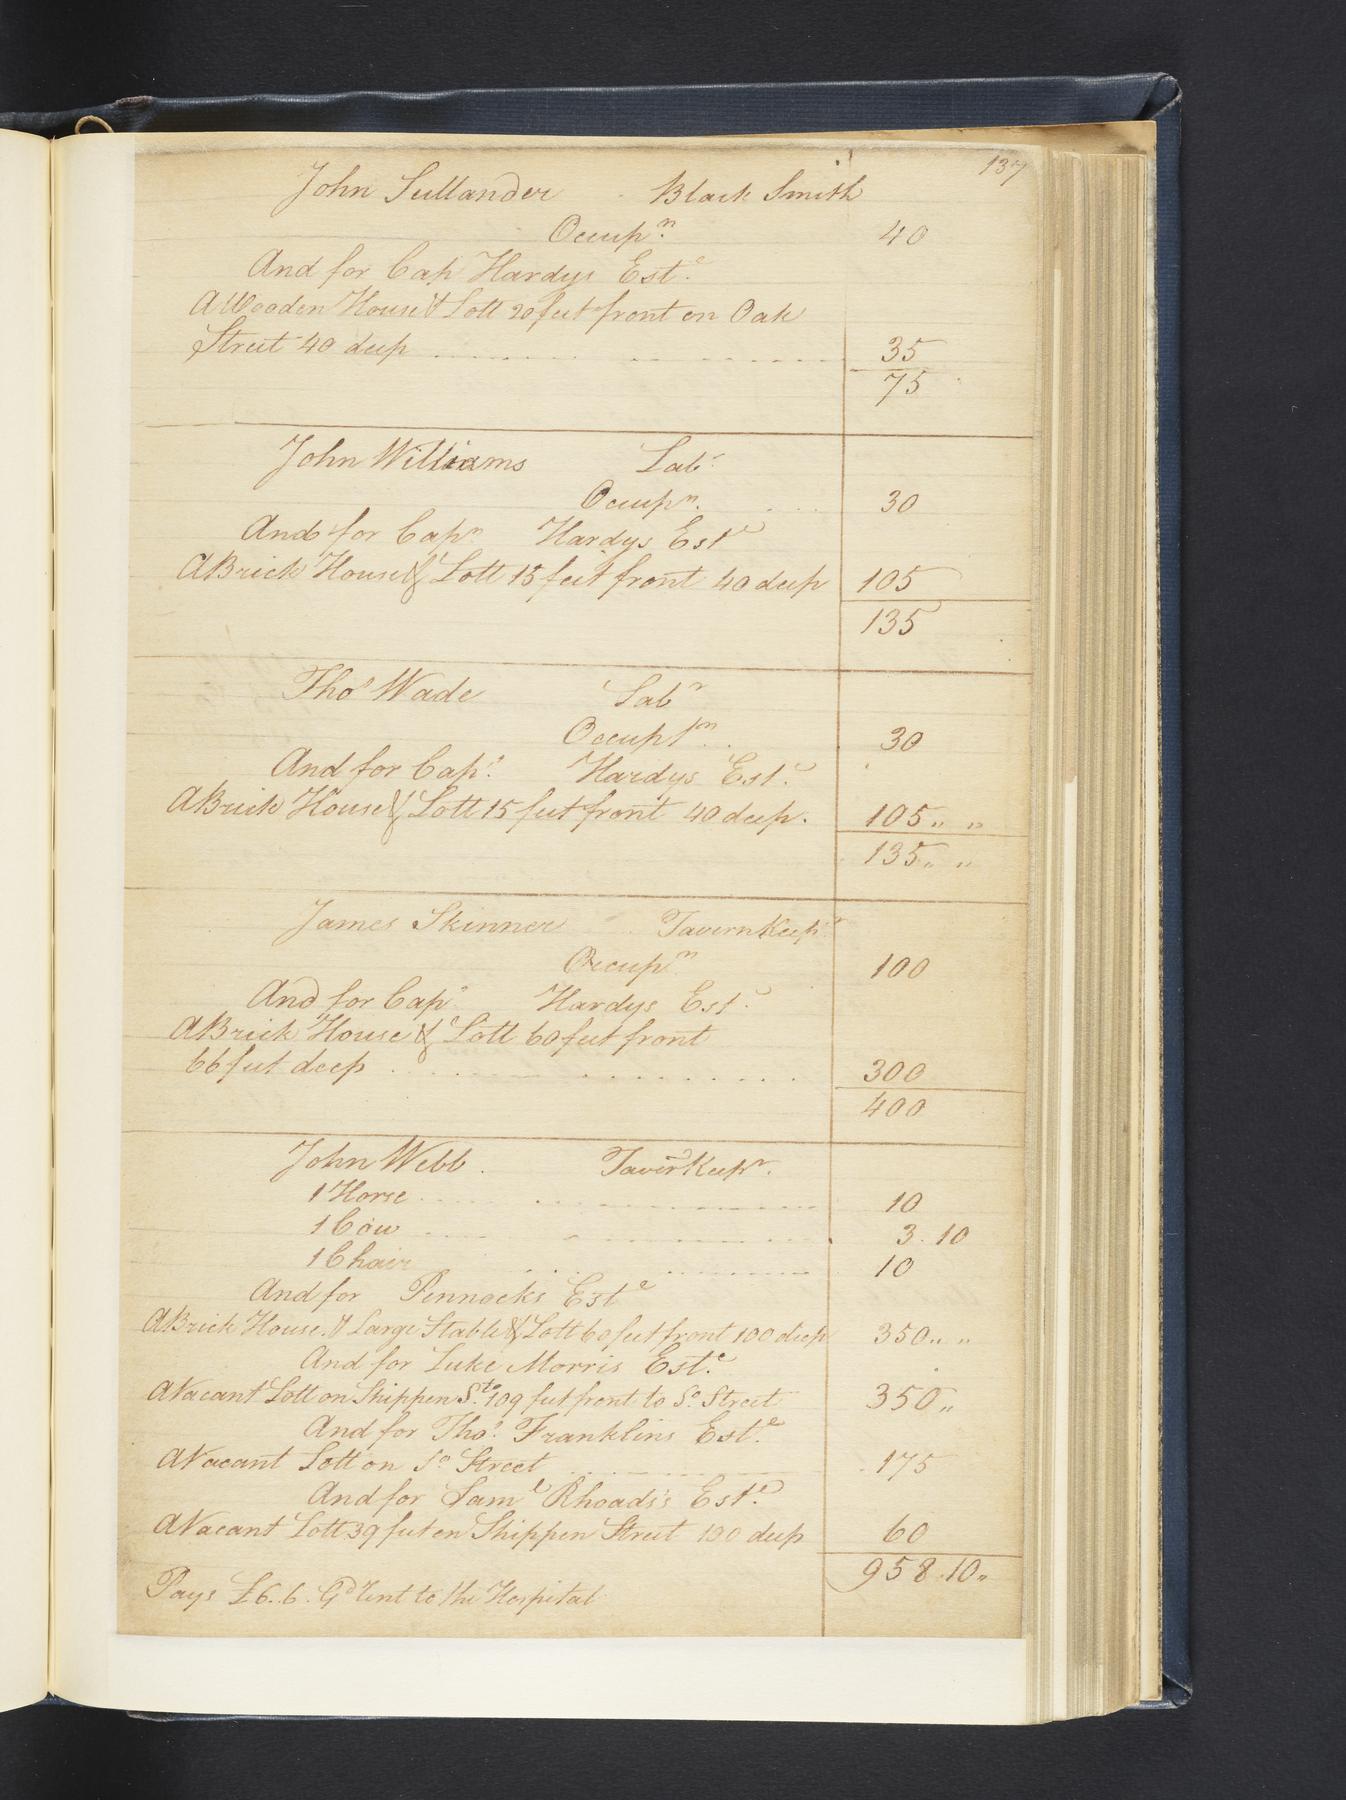 137
John Sullander Black Smith
Occupn. 40
And for Cap Hardys Este
A Wooden House & Lott 20 feet front on Oak
Street 40 deep 35
75
John Williams Labr
Occupn. 30
And for Capn Hardys Este
A Brick House & Lott 15 feet front 40 deep 105
135
Thos Wade Labr
Occuptn 30
And for Capt Hardys Este
A Brick House & Lott 15 feet front 40 deep. 105 " "
135 " "
James Skinner Tavern Keepr
Occupn 100
And for Capt Hardys Este
A Brick House & Lott 60 feet front
66 feet deep 300
400
John Webb. Tavern Keepr.
1 Horse 10
1 Cow 3. 10
1 Chair 10
And for Pennocks Este
A Brick House & Large Stable & Lott 60 feet front 100 deep 350 " "
And for Luke Morris Este
A Vacant Lott on Shippen St. 109 feet front to So Street 350 "
And for Thos. Franklins Este
A Vacant Lott on So Street 175
And for Saml Rhoads's Este
A Vacant Lott 39 feet on Shippen Street 190 deep 60
958.10 "
Pays £6..6. Gd Rent to the Hospital